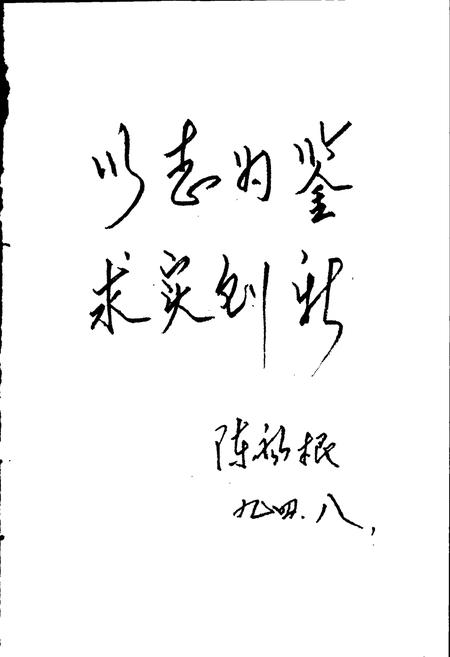 以志为鉴
求实创新
陈祢根
九四.八,